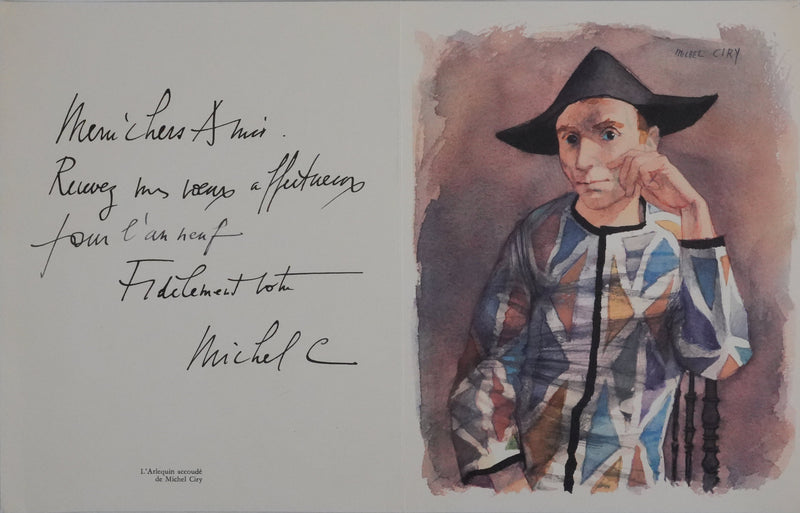 Merci chers Amis.
Recevez mes vœux affectueux
pour l'an neuf
Fidèlement votre
Michel C
L'Arlequin accoudé
de Michel Ciry
MICHEL CIRY